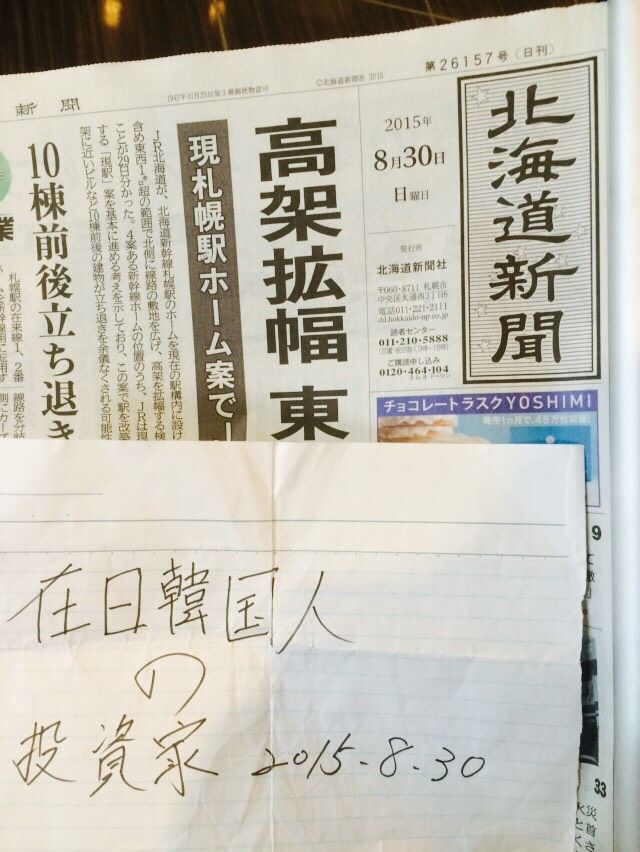 新聞
1942年10月29日第3種郵便物認可
©北海道新聞社 2015
第26157号 (日刊)
北海道新聞
2015年
8月30日
日曜日
発行所
北海道新聞社
〒060-8711 札幌市
中央区大通西3丁目6
電話011-221-2111
dd.hokkaido-np.co.jp
読者センター
011-210-5888
(日曜 祝日除く9時〜18時)
ご購読申し込み
0120-464-104
チョコレートラスクYOSHIMI
発売1ヵ月で、45万枚突破!
高架拡幅 東
現札幌駅ホーム案で
JR北海道が、北海道新幹線札幌駅のホームを現在の駅構内に設け
含め東西1㌔超の範囲で北側に線路の敷地を広げ、高架を拡幅する検
ことが29日分かった。4案ある新幹線ホームの位置のうち、JRは現
する「現駅」案を基本に進める考えを示しており、この案で駅を改築
架に近いビルなど10棟前後の建物が立ち退きを余儀なくされる可能性
10棟前後立ち退き
札幌駅の在来線1、2番
業
9
33
在日韓国人
の
投資家 2015.8.30